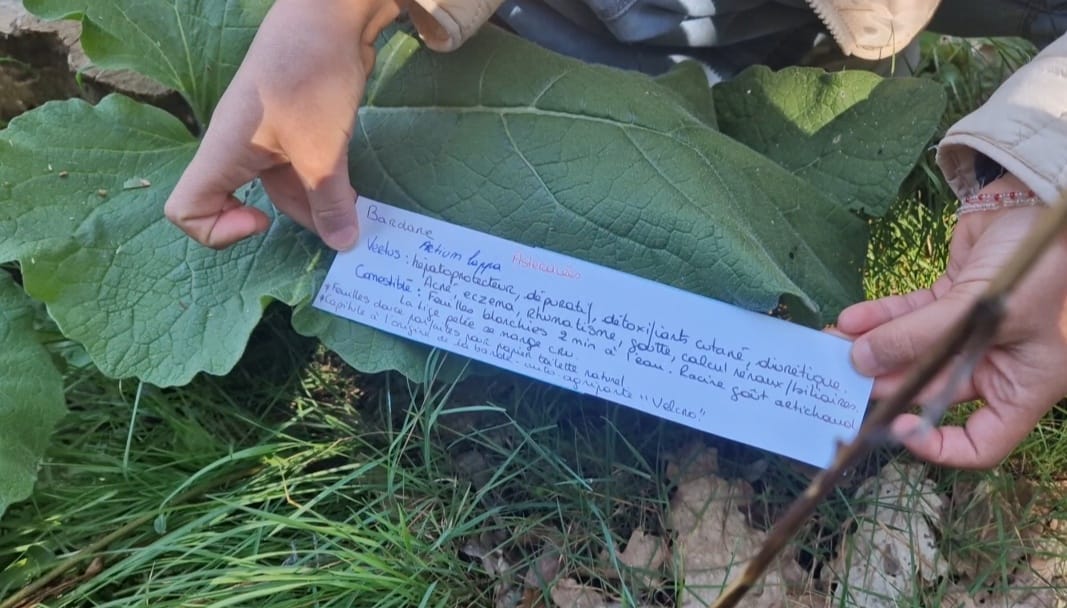 Bardane
Actium lappa Astéracées
Vertus : hépatoprotecteur, dépuratif, détoxifiants cutané, diurétique.
Acné, eczema, Rhumatisme, goutte, calcul rénaux/biliaires.
Comestible : Feuilles blanchies 2 min à l'eau. Racine goût artichaud
La tige pelée se mange cru.
*Feuilles douce parfaites pour papier toilette naturel
*Capitule à l'origine de la bande-auto agripante "Velcro"